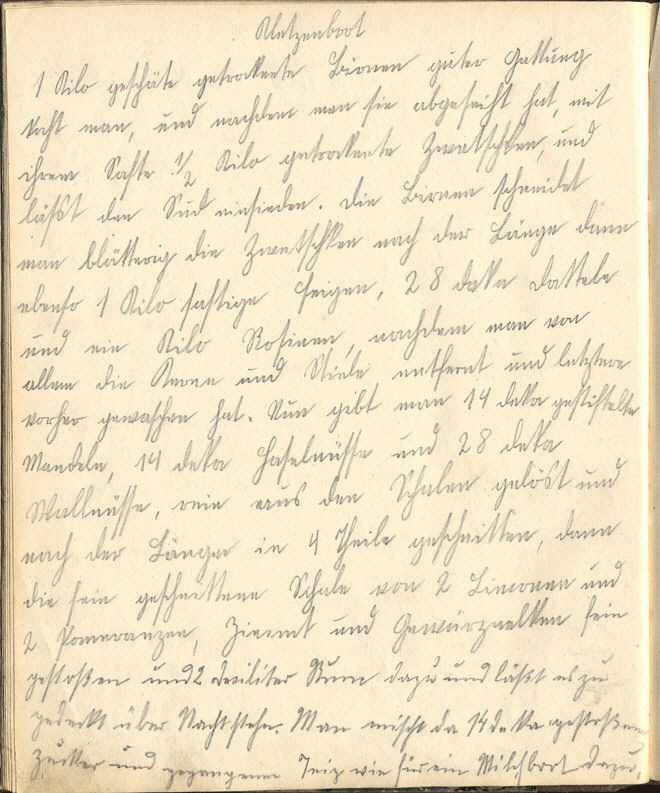 Kletzenbrot
1 Kilo geschäte getrocknete Birnen guter Gattung
kocht man, und nachdem man sie abgeseiht hat, mit
ihrem Safte 1/2 Kilo getrocknete Zwetschken, und
läßt den Sud einsieden. Die Birnen schneidet
man blätterig die Zwetschken nach der Länge dann
ebenso 1 Kilo saftige Feigen, 28 deka Datteln
und ein Kilo Rosinen, nachdem man von
allem die Kerne und Stiele entfernt und letztere
vorher gewaschen hat. Nun gibt man 14 deka gestiftelte
Mandeln, 14 deka Haselnüsse und 28 deka
Wallnüsse, rein aus den Schalen gelöst und
nach der Länge in 4 Theile geschnitten, dann
die fein geschnittene Schale von 2 Limonen und
2 Pomeranzen, Zimmt und Gewürznelken fein
gestoßen und 2 Deziliter Rum dazu und läßt es zu
gedeckt über Nacht stehn. Man mischt da 14 deka gestoßenen
Zucker und gegangenen Teig wie für ein Milchbrot dazu,